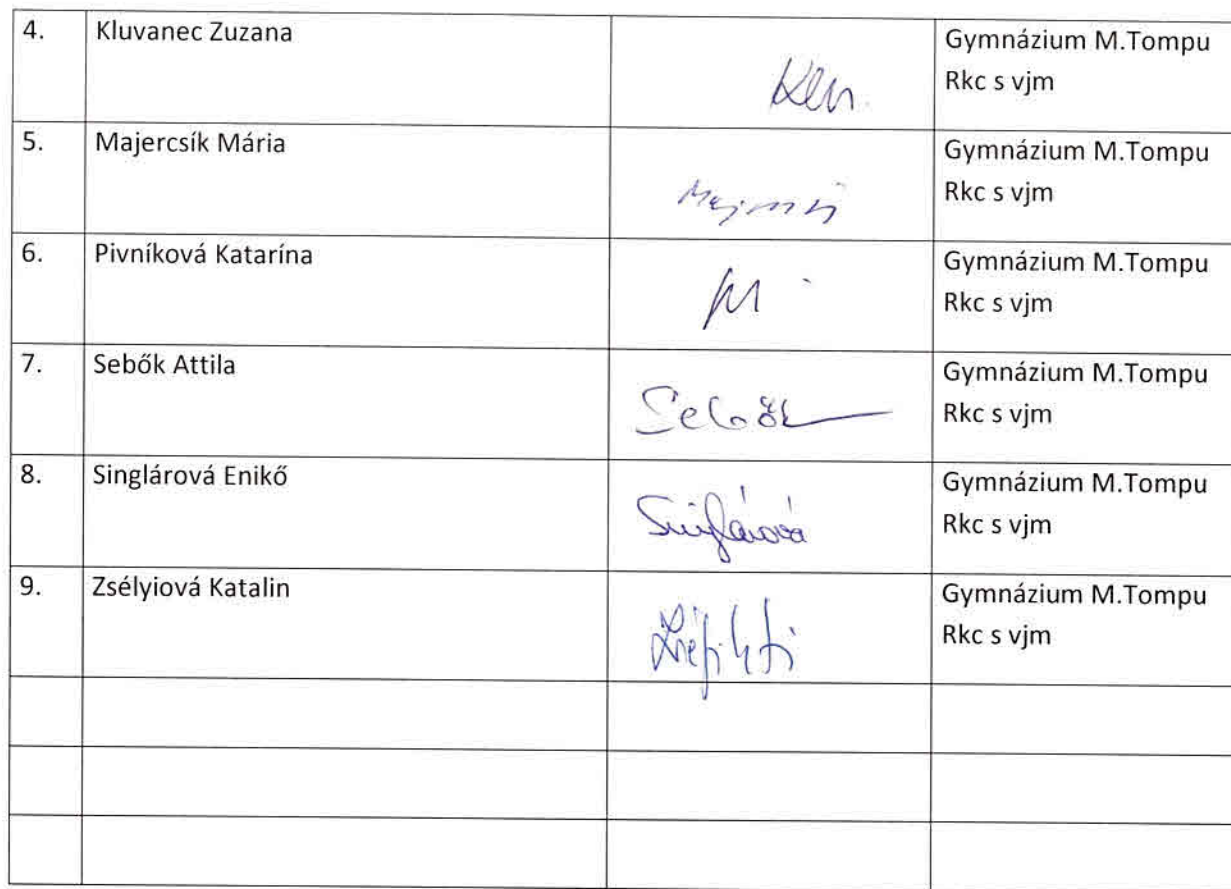 4. Kluvanec Zuzana Gymnázium M.Tompu
Rkc s vjm
5. Majercsík Mária Gymnázium M.Tompu
Rkc s vjm
6. Pivníková Katarína Gymnázium M.Tompu
Rkc s vjm
7. Sebők Attila Gymnázium M.Tompu
Sebők Rkc s vjm
8. Singlárová Enikő Gymnázium M.Tompu
Singlárová Rkc s vjm
9. Zsélyiová Katalin Gymnázium M.Tompu
Rkc s vjm